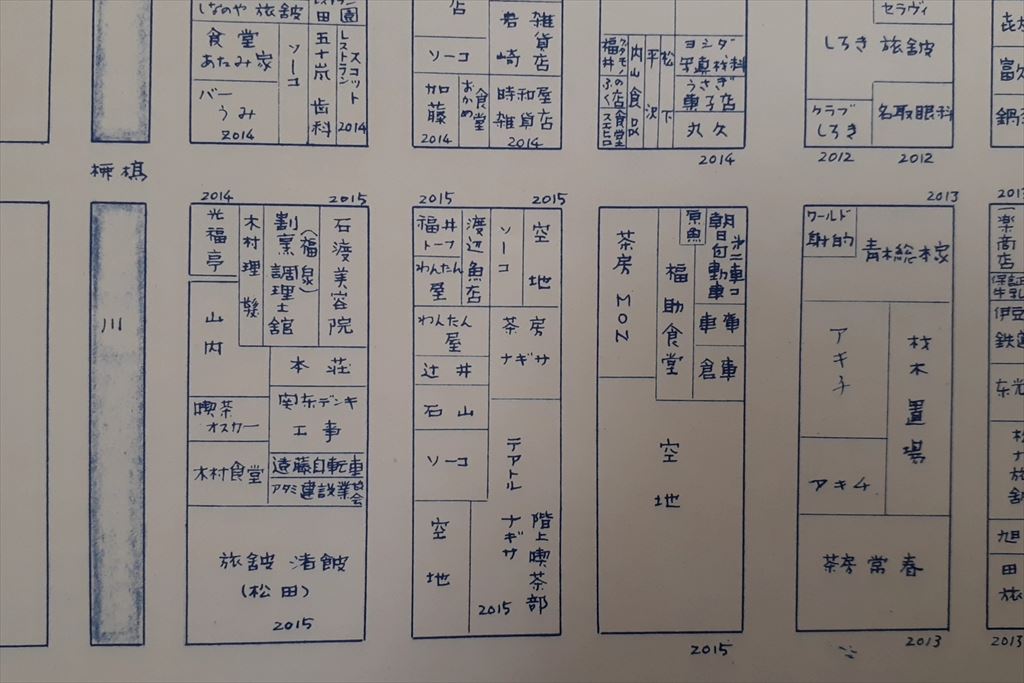 しなのや 旅舘
田
園
食堂
あたみ家
バー
うみ
2014
ソーコ
五十嵐 歯科
レストラン スコット
2014
店
ソーコ
加藤
2014
おかめ 食堂
岩崎 雑貨店
時和屋
雑貨店
2014
福井
ふく
の店
スエヒロ
食堂
内山食品
平沢
松下
ヨシダ
写真材料
うさぎ
菓子店
丸久
2014
セラヴィ
しろき 旅舘
クラブ
しろき
2012
名取眼科
2012
富久
川
2014
2015
光福亭
木村理髪
割烹調理士館
(福泉)
石渡美容院
山内
本荘
喫茶
オスカー
関东デンキ
工事
木村食堂
遠藤自転車
アタミ建設業協会
旅舘 渚館
(松田)
2015
2015
2015
福井
トーフ
渡辺魚店
ソーコ
空地
わんたん
屋
わんたん
屋
茶房
ナギサ
辻井
石山
ソーコ
テアトル ナギサ
空地
階上喫茶部
2015
茶房 MON
福助食堂
朝日自動車
車庫
倉庫
空地
2015
2013
ワールド
射的
青木総本家
アキチ
材木置場
アキチ
茶房 常春
2013
2013
楽商店
保証
牛乳
伊豆
鉄道
东光
松ナ旅舘
旭
田
旅
2013